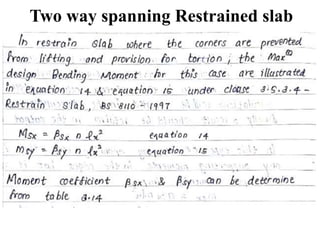 Two way spanning Restrained slab
In restrain slab where the corners are prevented
from lifting and provision for tortion, the max(m)
design Bending Moment for this case are illustrated
in equation 14 & equation 15 under clause 3.5.3.4 –
Restrain slab, BS 8110 – 1997
Msx = βsx n lx² equation 14
msy = βsy n lx² equation 15
Moment coefficient βsx & βsy can be determine
from table 3.14